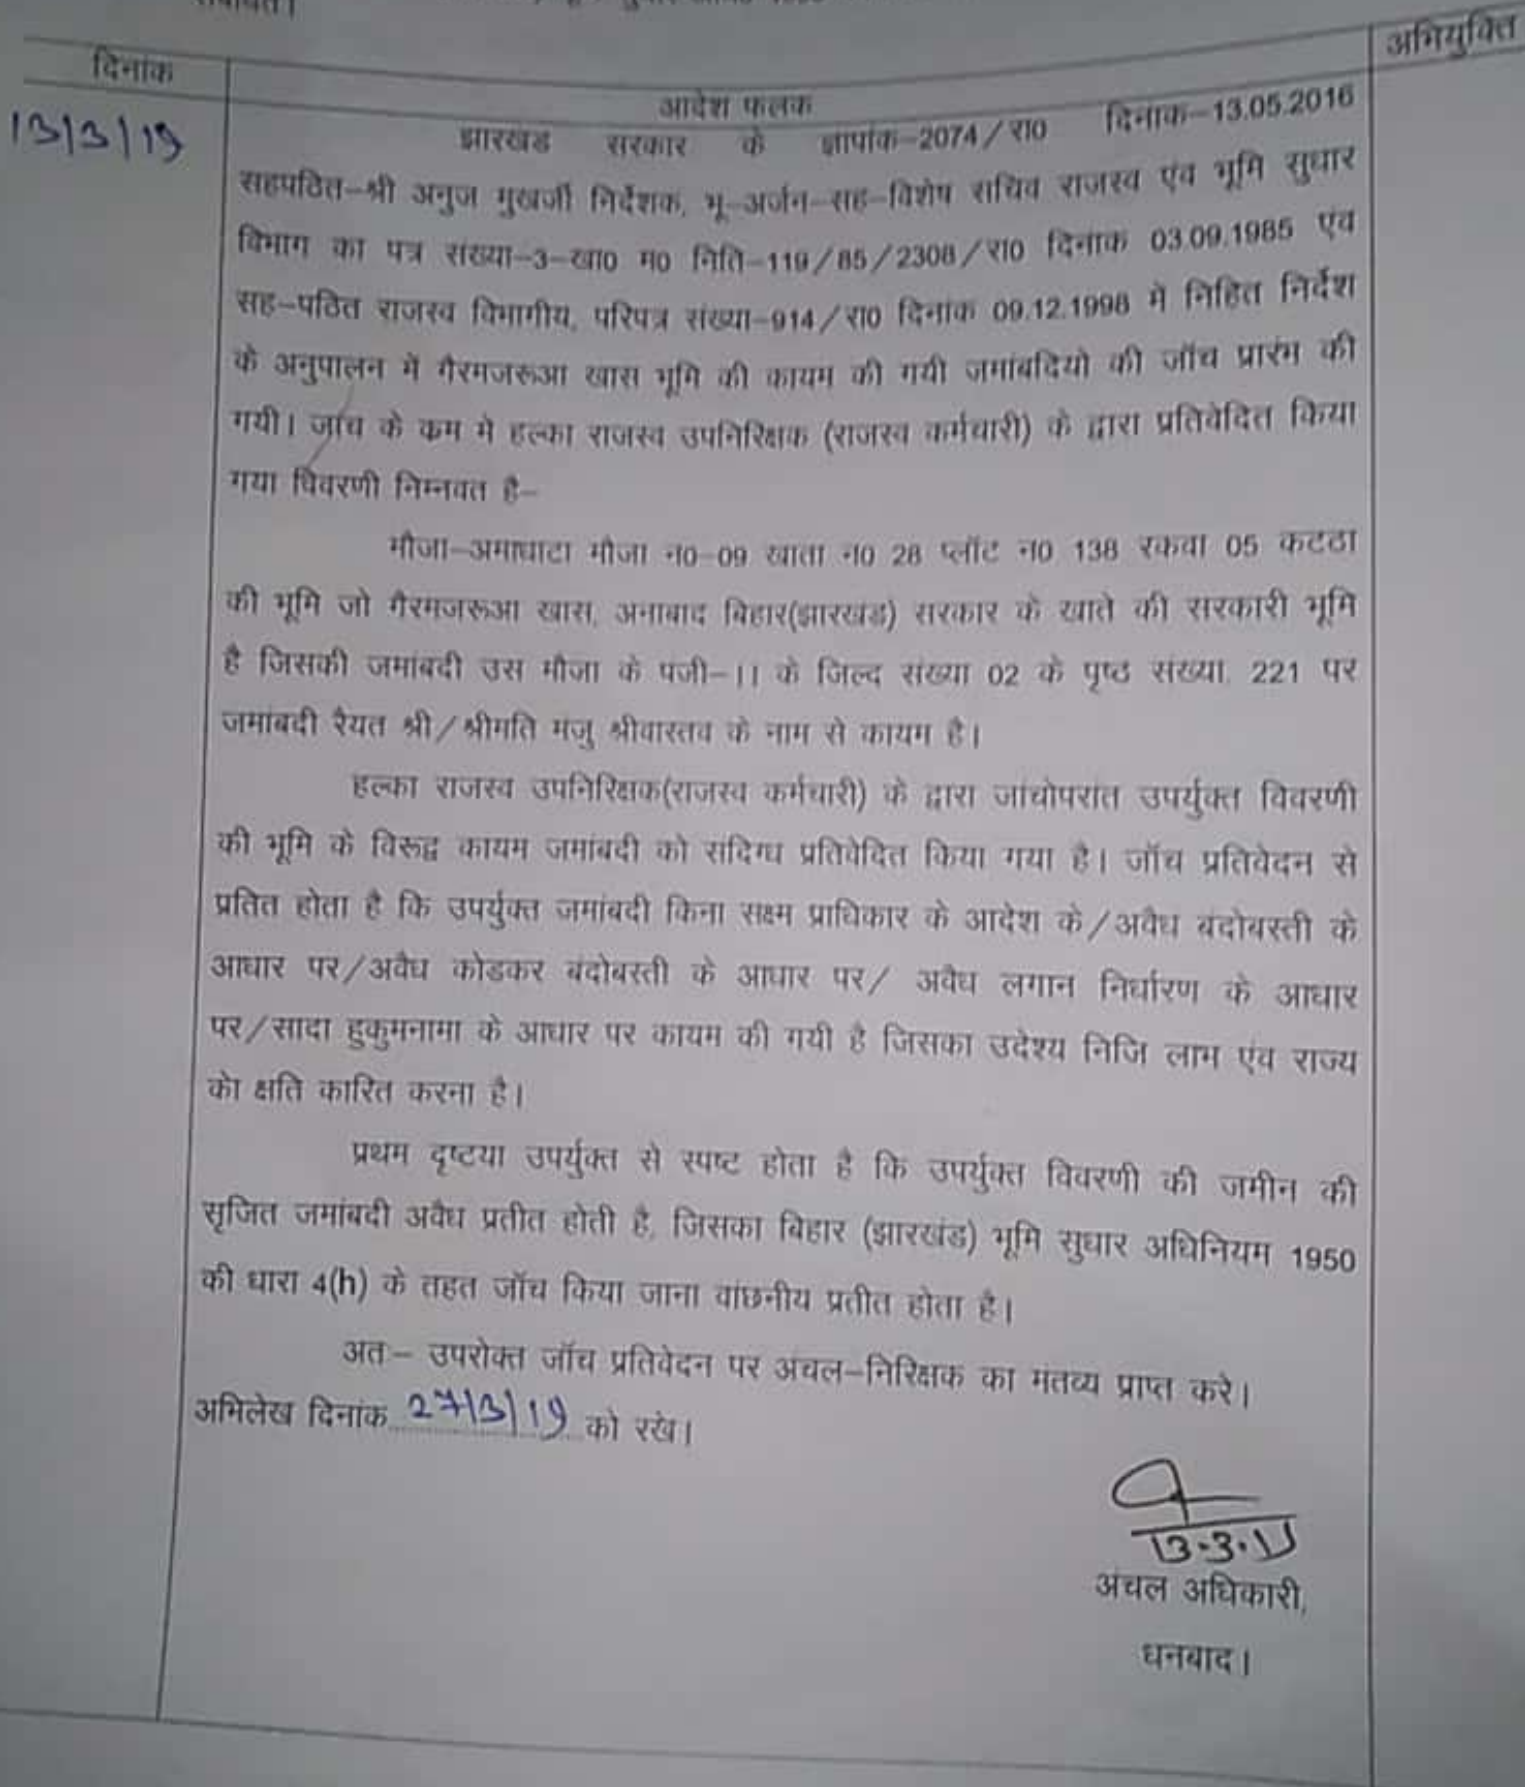 दिनांक
अभियुक्ति
आदेश फलक
13/3/19
झारखंड सरकार के ज्ञापांक-2074/रा0 दिनांक-13.05.2016
सहपठित-श्री अनुज मुखर्जी निर्देशक, भू-अर्जन-सह-विशेष सचिव राजस्व एंव भूमि सुधार
विभाग का पत्र संख्या-3-खा0 म0 निति-119/85/2308/रा0 दिनांक 03.09.1985 एंव
सह-पठित राजस्व विभागीय, परिपत्र संख्या-914/रा0 दिनांक 09.12.1998 में निहित निर्देश
के अनुपालन में गैरमजरूआ खास भूमि की कायम की गयी जमांबदियो की जॉच प्रारंभ की
गयी। जांच के कम मे हल्का राजस्व उपनिरिक्षक (राजस्व कर्मचारी) के द्वारा प्रतिवेदित किया
गया विवरणी निम्नवत है-
मौजा-अमाघाटा मौजा न0-09 खाता न0 28 प्लॉट न0 138 रकवा 05 कटठा
की भूमि जो गैरमजरूआ खास, अनाबाद बिहार(झारखंड) सरकार के खाते की सरकारी भूमि
है जिसकी जमांबदी उस मौजा के पंजी-।। के जिल्द संख्या 02 के पृष्ठ संख्या, 221 पर
जमांबदी रैयत श्री/श्रीमति मंजु श्रीवास्तव के नाम से कायम है।
हल्का राजस्व उपनिरिक्षक(राजस्व कर्मचारी) के द्वारा जांचोपरांत उपर्युक्त विवरणी
की भूमि के विरूद्व कायम जमांबदी को संदिग्ध प्रतिवेदित किया गया है। जॉच प्रतिवेदन से
प्रतित होता है कि उपर्युक्त जमांबदी किना सक्ष्म प्राधिकार के आदेश के/अवैध बंदोबस्ती के
आधार पर/अवैध कोडकर बंदोबस्ती के आधार पर/ अवैध लगान निर्धारण के आधार
पर/सादा हुकुमनामा के आधार पर कायम की गयी है जिसका उदेश्य निजि लाभ एंव राज्य
को क्षति कारित करना है।
प्रथम दृष्टया उपर्युक्त से स्पष्ट होता है कि उपर्युक्त विवरणी की जमीन की
सृजित जमांबदी अवैध प्रतीत होती है, जिसका बिहार (झारखंड) भूमि सुधार अधिनियम 1950
की धारा 4(h) के तहत जॉच किया जाना वांछनीय प्रतीत होता है।
अतः- उपरोक्त जॉच प्रतिवेदन पर अंचल-निरिक्षक का मंतव्य प्राप्त करे।
अभिलेख दिनांक 27/3/19 को रखें।
13.3.19
अंचल अधिकारी,
धनबाद।